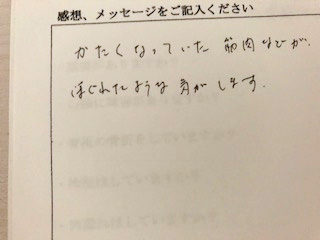 感想、メッセージをご記入ください
かたくなっていた 筋肉などが、
ほぐれたような 気がします.